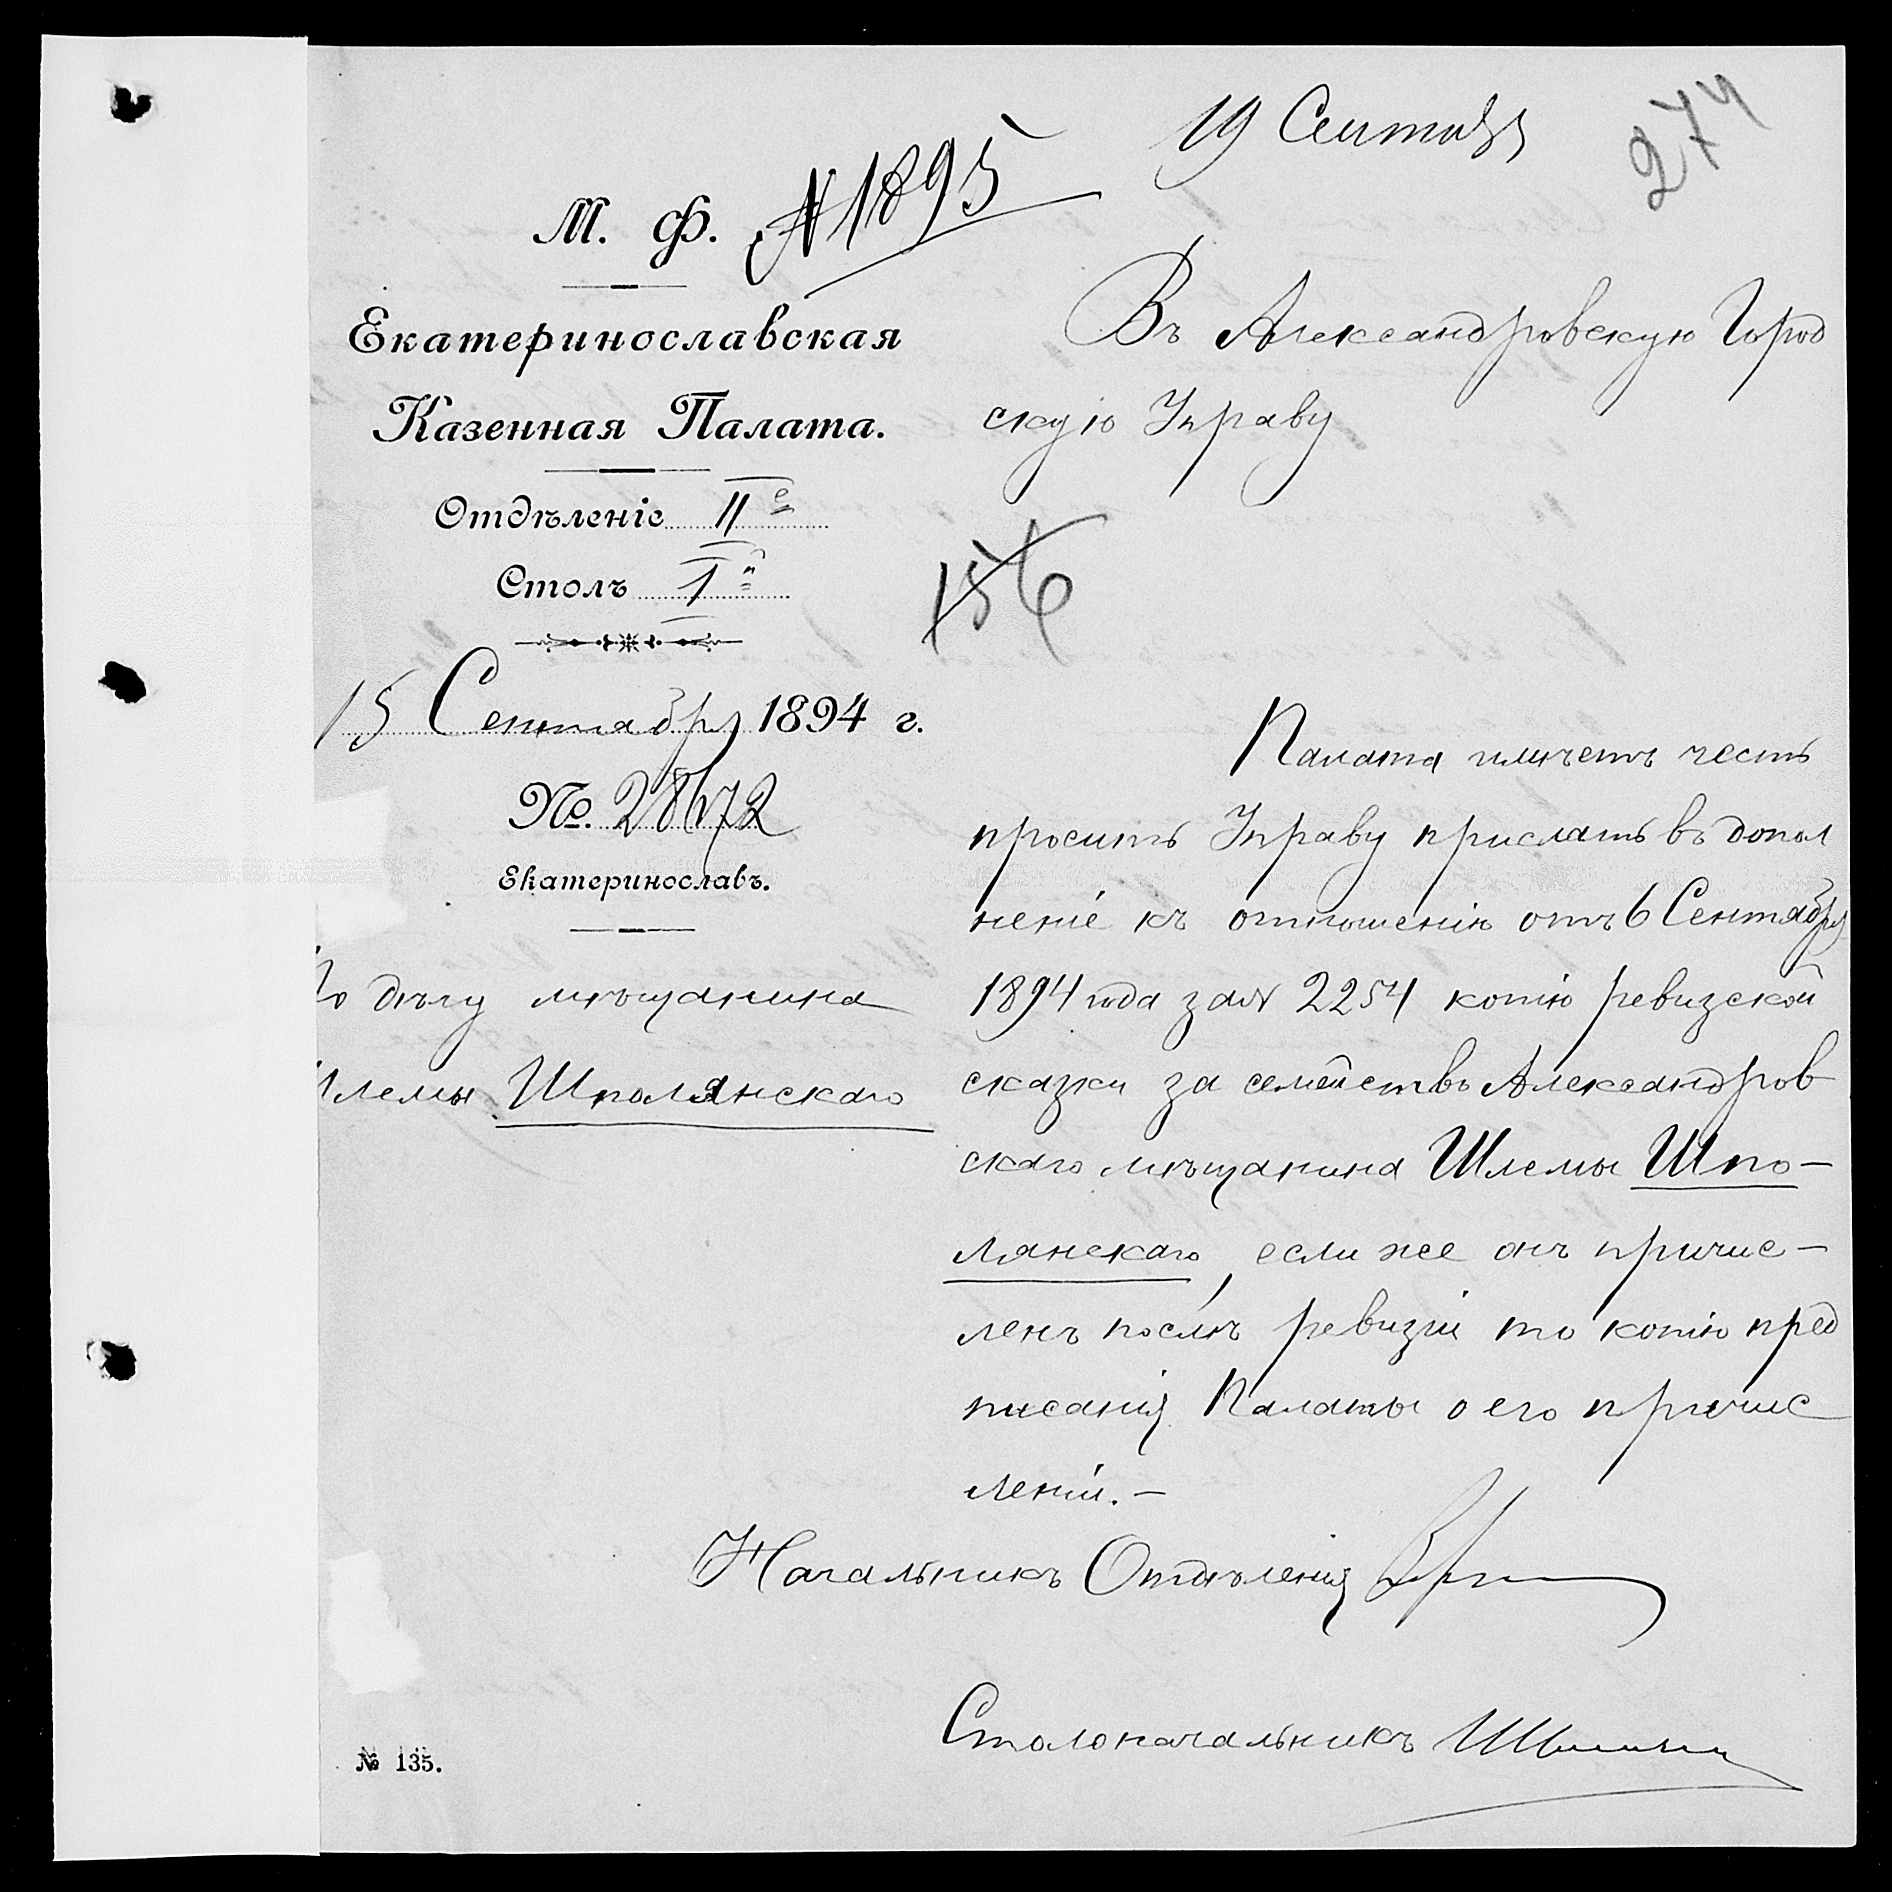 19 Сентября
274
М. Ф. № 1895
Екатеринославская
Казенная Палата.
Отдѣленіе II е
Столъ 1 й
15 Сентября 1894 г.
№ 28672
Екатеринославъ.
По дѣлу мѣщанина
Шлемы Шполянскаго
Въ Александровскую Город
скую Управу
156
Палата имѣетъ честь
просить Управу прислать въ допол
неніе къ отношенію отъ 6 Сентября
1894 года за № 2254 копію ревизской
сказки за семейство Александров
скаго мѣщанина Шлемы Шпо-
лянскаго, если же онъ причис-
ленъ послѣ ревизіи то копію пред
писанія Палаты о его причис
леніи.-
Начальникъ Отдѣленія
Столоначальникъ
№ 135.